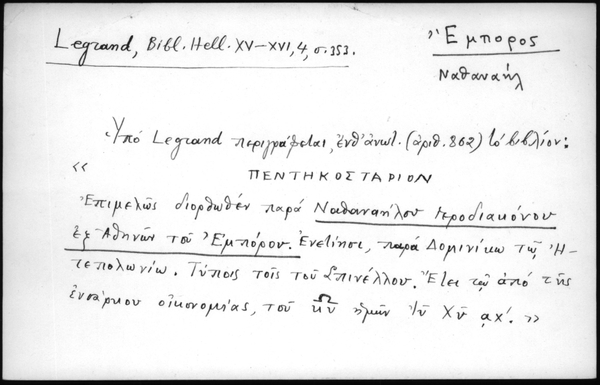 Legrand, Bibl. Hell. XV–XVI, 4, σ. 353.
Ἔμπορος
Ναθαναήλ
Ὑπό Legrand περιγράφεται, ἔνθ' ἀνωτ. (ἀριθ. 862) τό βιβλίον:
« ΠΕΝΤΗΚΟΣΤΑΡΙΟΝ
Ἐπιμελῶς διορθωθέν παρά Ναθαναήλου ἱεροδιακόνου
ἐξ Ἀθηνῶν τοῦ Ἐμπόρου. Ἐνετίησι, παρά Δομινίκω τῷ Ἠ-
τεπολωνίω. Τύποις τοῖς τοῦ Σπινέλλου. Ἔτει τῷ ἀπό τῆς
ἐνσάρκου οἰκονομίας, τοῦ κῦ ἡμῶν ἰῦ χῦ αχ'. »